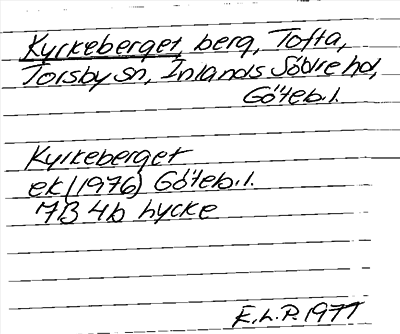 Kyrkeberget, berg, Tofta,
Torsby sn, Inlands Södre hd,
Göteb.l.
Kyrkeberget
ek (1976) Göteb.l.
7B 4b Lycke
E.L.P. 1977